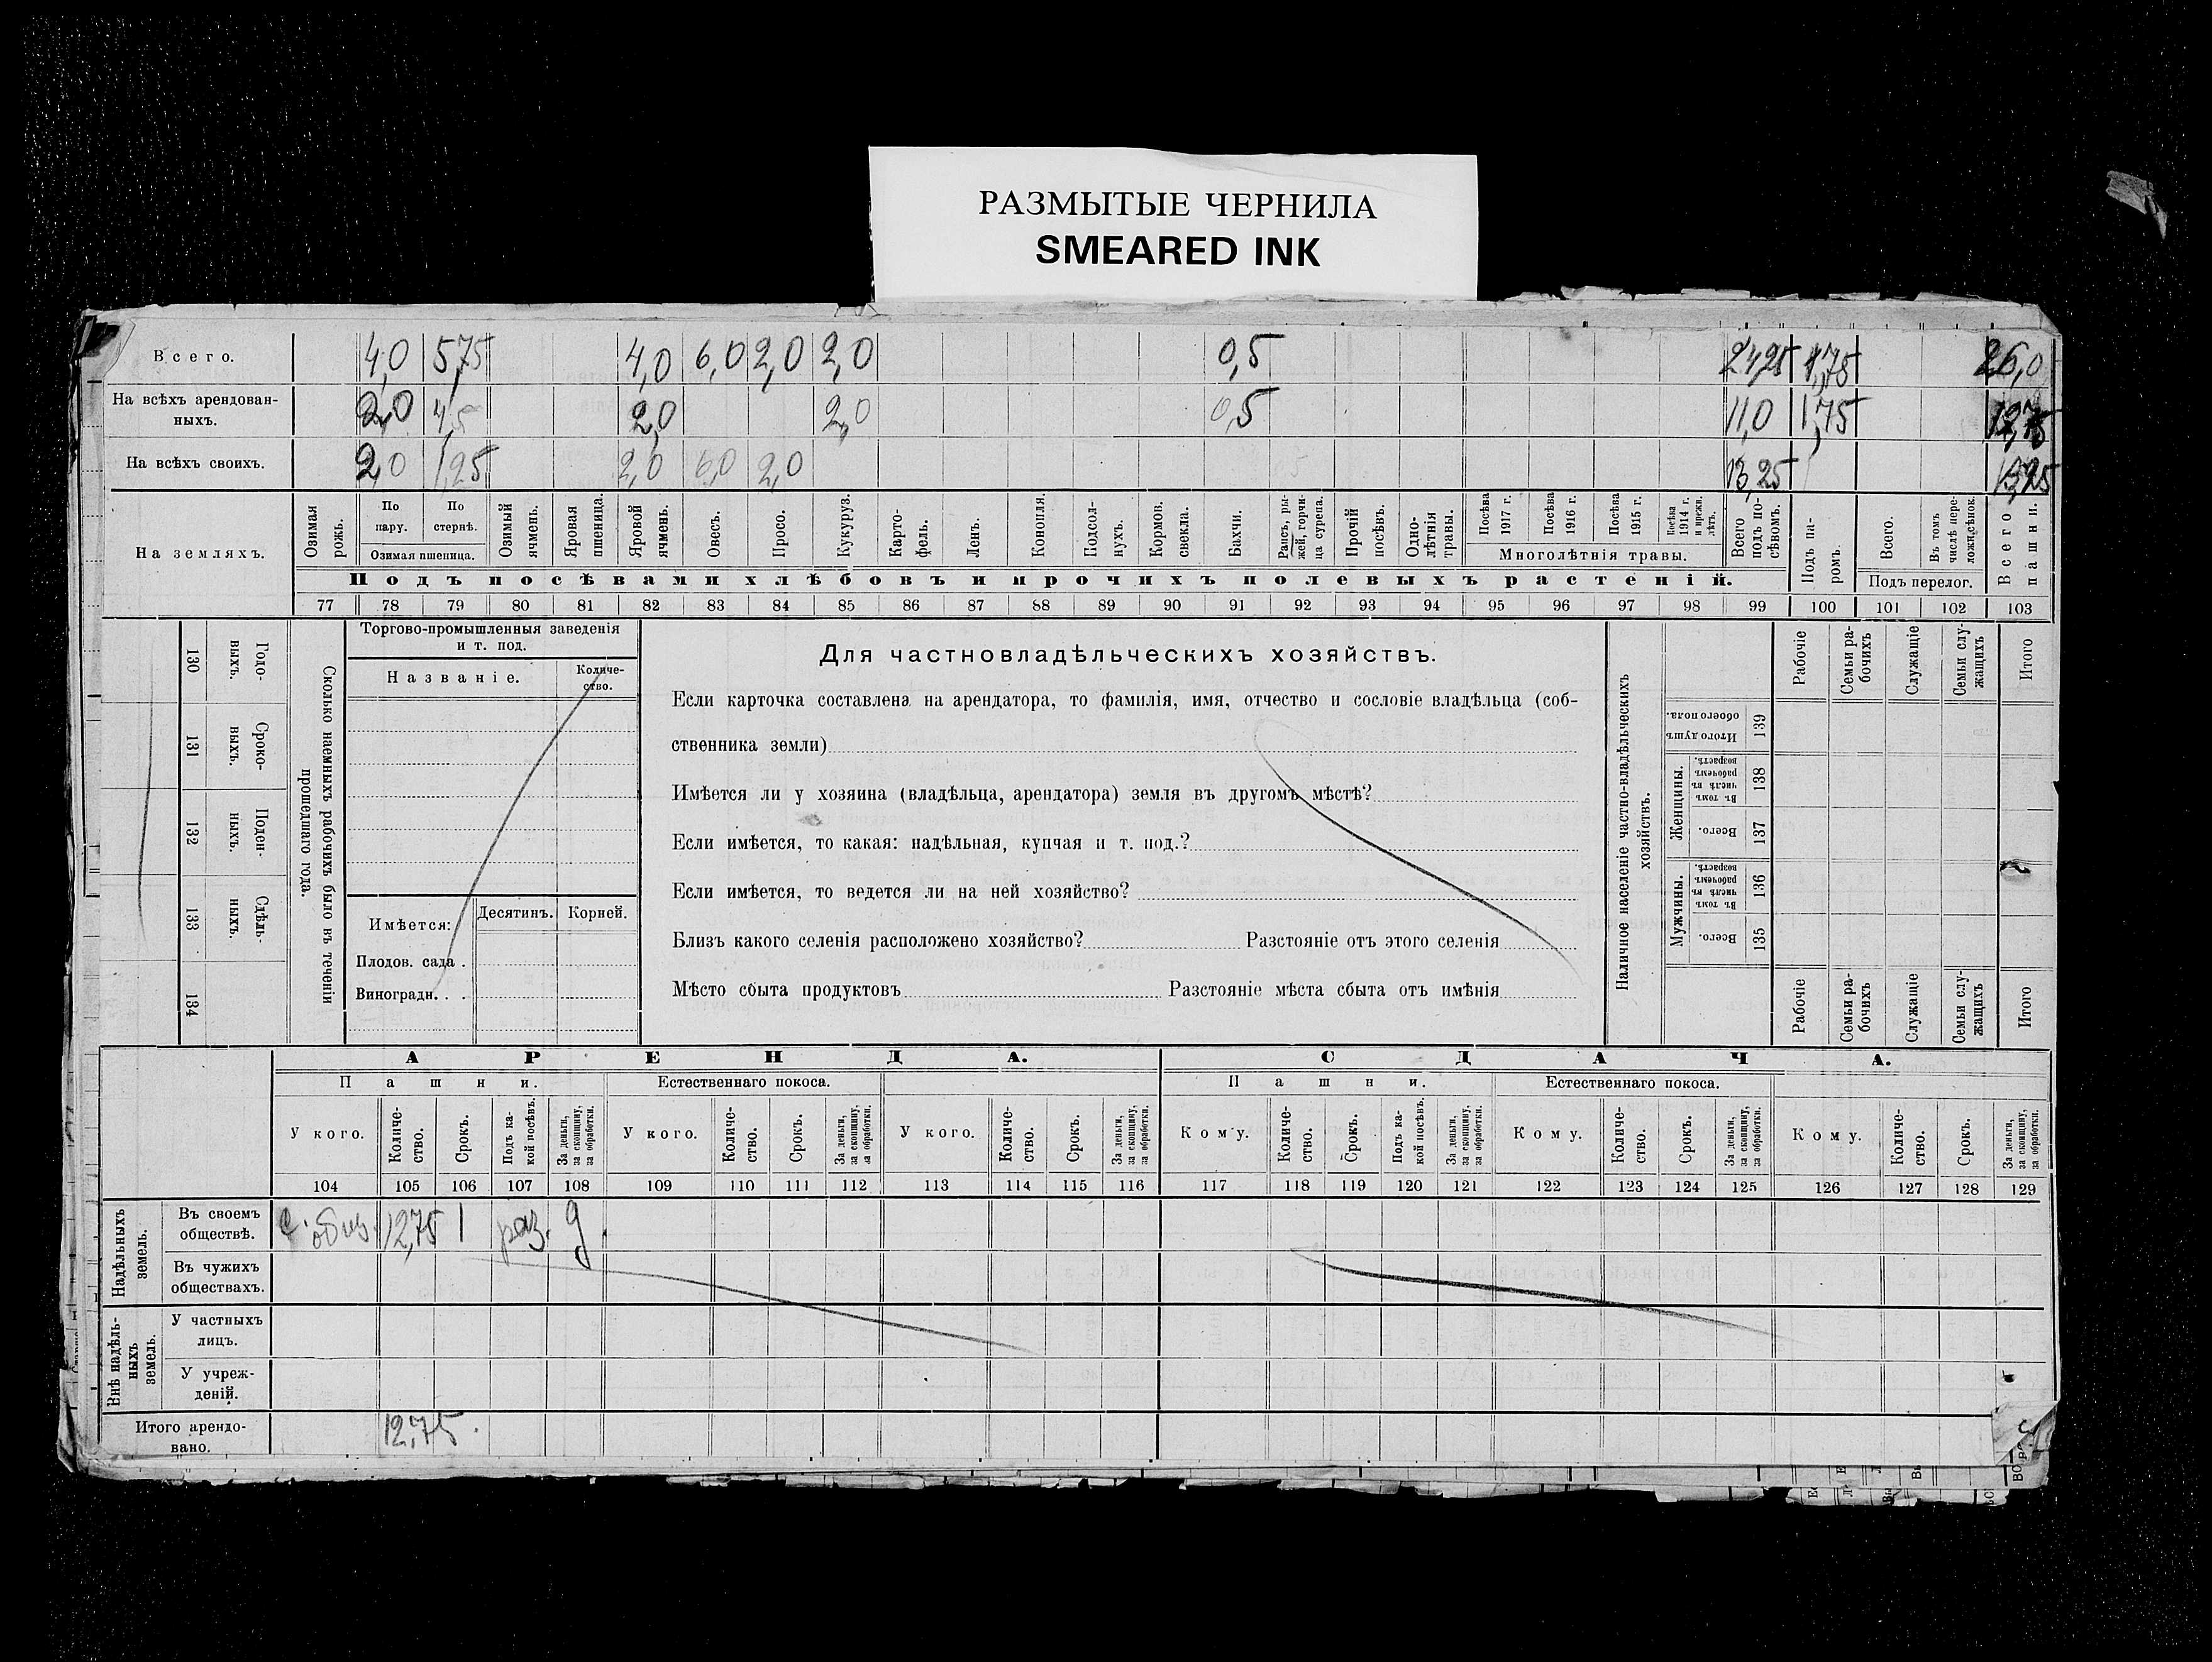 РАЗМЫТЫЕ ЧЕРНИЛА
SMEARED INK
Всего. 4,0 5,75 4,0 6,0 2,0 2,0 0,5 24,25 1,75 26,0
На всѣхъ арендован-
ныхъ. 2,0 4,5 2,0 2,0 0,5 11,0 1,75 12,75
На всѣхъ своихъ. 2,0 1,25 2,0 6,0 2,0 13,25 13,25
На земляхъ.
Озимая рожь.
По пару.
По стернѣ.
Озимая пшеница.
Озимый ячмень.
Яровая пшеница.
Яровой ячмень.
Овесъ.
Просо.
Кукуруз.
Карто-
фель.
Ленъ.
Конопля.
Подсол-
нухъ.
Кормов. свекла.
Бахчи.
Рапсъ, ры-
жей, горчи-
ца сурепа.
Прочій посѣвъ.
Одно-
лѣтнія травы.
Посѣва 1917 г.
Посѣва 1916 г.
Посѣва 1915 г.
Посѣва 1914 г. и прежн. лѣтъ.
Многолѣтнія травы.
Всего подъ по-
сѣвомъ.
Подъ па-
ромъ.
Всего.
Въ томъ числѣ пере-
ложн. сѣнок.
Подъ перелог.
Всего пашни.
Подъ посѣвами хлѣбовъ и прочихъ полевыхъ растеній.
77 78 79 80 81 82 83 84 85 86 87 88 89 90 91 92 93 94 95 96 97 98 99 100 101 102 103
130 Годо-
выхъ.
131 Сроко-
выхъ.
132 Поден-
ныхъ.
133 Сдѣль-
ныхъ.
134
Сколько наемныхъ рабочихъ было въ теченіи
прошедшаго года.
Торгово-промышленныя заведенія
и т. под.
Названіе.
Количе-
ство.
Имѣется: Десятинъ. Корней.
Плодов. сада .
Виноградн. . .
Для частновладѣльческихъ хозяйствъ.
Если карточка составлена на арендатора, то фамилія, имя, отчество и сословіе владѣльца (соб-
ственника земли)
Имѣется ли у хозяина (владѣльца, арендатора) земля въ другомъ мѣстѣ?
Если имѣется, то какая: надѣльная, купчая и т. под.?
Если имѣется, то ведется ли на ней хозяйство?
Близъ какого селенія расположено хозяйство? Разстояніе отъ этого селенія
Мѣсто сбыта продуктовъ Разстояніе мѣста сбыта отъ имѣнія
Наличное населеніе частно-владѣльческихъ
хозяйствъ.
Рабочіе
Семьи ра-
бочихъ
Служащіе
Семьи слу-
жащихъ
Итого
Итого душъ обоего пола. 139
Женщины.
Въ томъ числѣ въ рабочемъ возрастѣ. 138
Всего. 137
Мужчины.
Въ томъ числѣ въ рабочемъ возрастѣ. 136
Всего. 135
Рабочіе
Семьи ра-
бочихъ
Служащіе
Семьи слу-
жащихъ
Итого
АРЕНДА. СДАЧА.
Пашни. Естественнаго покоса. Пашни. Естественнаго покоса.
У кого.
Количе-
ство.
Срокъ.
Подъ ка-
кой посѣвъ.
За деньги, за скопщину, за обработки.
У кого.
Количе-
ство.
Срокъ.
За деньги, за скопщину, за обработки.
У кого.
Количе-
ство.
Срокъ.
За деньги, за скопщину, за обработки.
Кому.
Количе-
ство.
Срокъ.
Подъ ка-
кой посѣвъ.
За деньги, за скопщину, за обработки.
Кому.
Количе-
ство.
Срокъ.
За деньги, за скопщину, за обработки.
Кому.
Количе-
ство.
Срокъ.
За деньги, за скопщину, за обработки.
104 105 106 107 108 109 110 111 112 113 114 115 116 117 118 119 120 121 122 123 124 125 126 127 128 129
Надѣльныхъ земель.
Въ своемъ
обществѣ. с. общ. 12,75 1 раз. д.
Въ чужихъ
обществахъ.
Внѣ надѣль-
ныхъ земель.
У частныхъ
лицъ.
У учреж-
деній.
Итого арендо-
вано. 12,75.